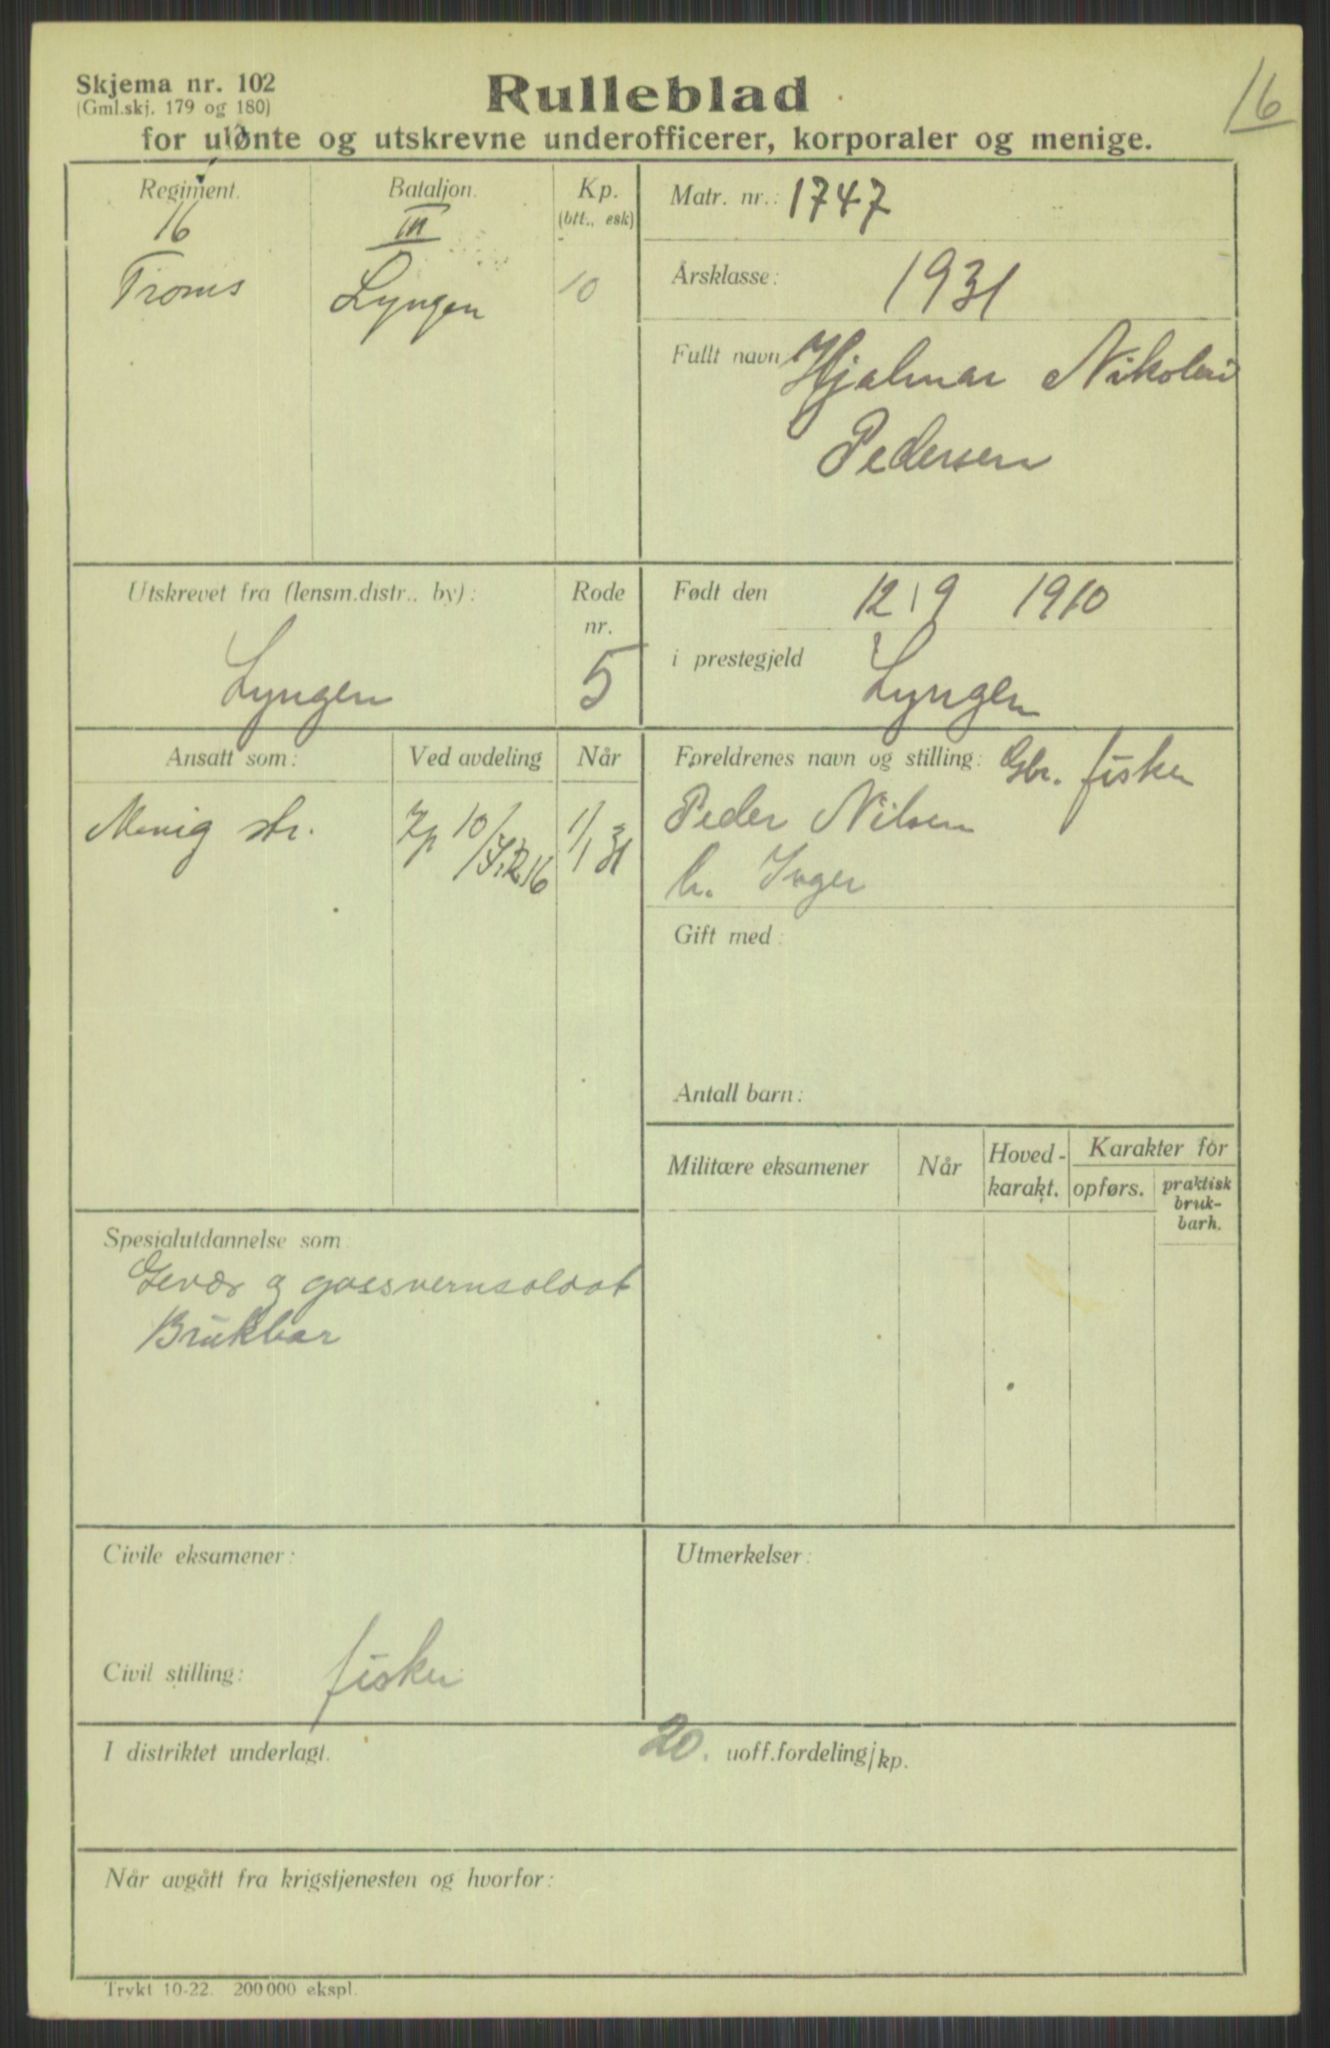 16
Skjema nr. 102
(Gml.skj. 179 og 180)
Rulleblad
for ulønte og utskrevne underofficerer, korporaler og menige.
Regiment. Bataljon. Kp. (btt., esk)
16 III
Troms Lyngen 10
Matr. nr.: 1747
Årsklasse: 1931
Fullt navn Hjalmar Nikolai
Pedersen
Utskrevet fra (lensm.distr., by): Rode nr.
Lyngen 5
Født den 12/9 1910
i prestegjeld Lyngen
Ansatt som: Ved avdeling Når
Menig str. Kp 10/I.R.16 1/1 31
Foreldrenes navn og stilling: Gbr. fisker
Peder Nilsen
h. Inger
Gift med:
Antall barn:
Militære eksamener Når Hoved-karakt. Karakter for
opførs. praktisk
bruk-
barh.
Spesialutdannelse som
Gevær og gassvernsoldat
Brukbar
Civile eksamener:
Civil stilling: fisker
Utmerkelser:
I distriktet underlagt. 20. uoff.fordeling/kp.
Når avgått fra krigstjenesten og hvorfor:
Trykt 10-22. 200 000 ekspl.